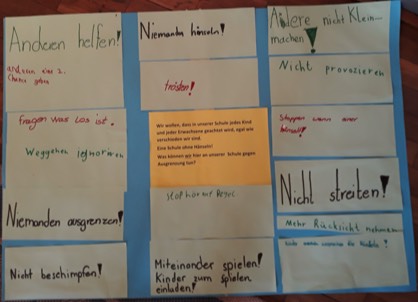 Anderen helfen!
anderen eine 2.
Chance geben
fragen was los ist.
Weggehen ignorieren
Niemanden ausgrenzen!
Nicht beschimpfen!
Niemanden hänseln!
trösten!
Wir wollen, dass in unserer Schule jedes Kind
und jeder Erwachsene geachtet wird, egal wie
verschieden wir sind.
Eine Schule ohne Hänseln!
Was können wir hier an unserer Schule gegen
Ausgrenzung tun?
Miteinander spielen!
Kinder zum spielen
einladen!
Andere nicht Klein-
machen!
Nicht provozieren
Stoppen wenn einer
Nicht streiten!
Mehr Rücksicht nehmen